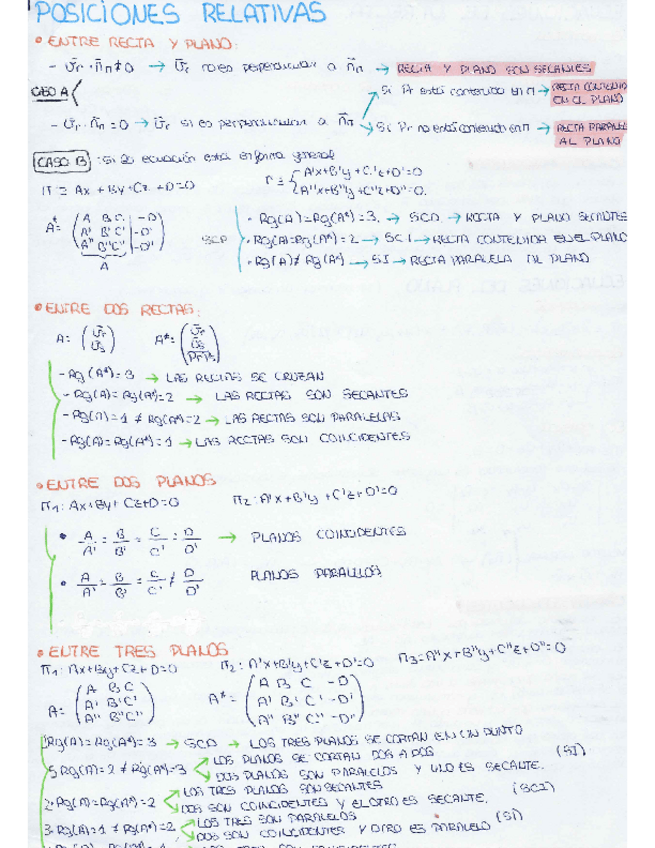 POSICIONES RELATIVAS
• ENTRE RECTA Y PLANO:
- v⃗r · n⃗π ≠ 0 → v⃗r no es perpendicular a n⃗π → RECTA Y PLANO SON SECANTES
CASO A
Si Pr está contenido en π → RECTA CONTENIDA EN EL PLANO
- v⃗r · n⃗π = 0 → v⃗r si es perpendicular a n⃗π
Si Pr no está contenido en π → RECTA PARALELA AL PLANO
CASO B : Si la ecuación está en forma general
π ≡ Ax + By + Cz + D = 0
r ≡ { A'x+B'y+C'z+D'=0
A''x+B''y+C''z+D''=0.
A* = ( A B C | -D
A' B' C' | -D'
A'' B'' C'' | -D'' )
A
SCP
- Rg(A)=Rg(A*)=3. → SCD → RECTA Y PLANO SECANTES
- Rg(A)=Rg(A*)=2 → SCI → RECTA CONTENIDA EN EL PLANO
- Rg(A)≠Rg(A*) → SI → RECTA PARALELA AL PLANO
• ENTRE DOS RECTAS:
A = ( v⃗r
v⃗s )
A* = ( v⃗r
v⃗s
PrPs )
- Rg(A*)=3 → LAS RECTAS SE CRUZAN
- Rg(A)=Rg(A*)=2 → LAS RECTAS SON SECANTES
- Rg(A)=1 ≠ Rg(A*)=2 → LAS RECTAS SON PARALELAS
- Rg(A)=Rg(A*)=1 → LAS RECTAS SON COINCIDENTES
• ENTRE DOS PLANOS
π1: Ax+By+Cz+D=0 π2: A'x+B'y+C'z+D'=0
• A/A' = B/B' = C/C' = D/D' → PLANOS COINCIDENTES
• A/A' = B/B' = C/C' ≠ D/D' PLANOS PARALELOS
• ENTRE TRES PLANOS
π1: Ax+By+Cz+D=0 π2: A'x+B'y+C'z+D'=0 π3=A''x+B''y+C''z+D''=0
A = ( A B C
A' B' C'
A'' B'' C'' )
A* = ( A B C -D
A' B' C' -D'
A'' B'' C'' -D'' )
Rg(A)=Rg(A*)=3 → SCD → LOS TRES PLANOS SE CORTAN EN UN PUNTO
Rg(A)=2 ≠ Rg(A*)=3
LOS PLANOS SE CORTAN DOS A DOS (SI)
DOS PLANOS SON PARALELOS Y UNO ES SECANTE.
2. Rg(A)=Rg(A*)=2
LOS TRES PLANOS SON SECANTES
DOS SON COINCIDENTES Y EL OTRO ES SECANTE. (SCI)
3. Rg(A)=1 ≠ Rg(A*)=2
LOS TRES SON PARALELOS (SI)
DOS SON COINCIDENTES Y OTRO ES PARALELO